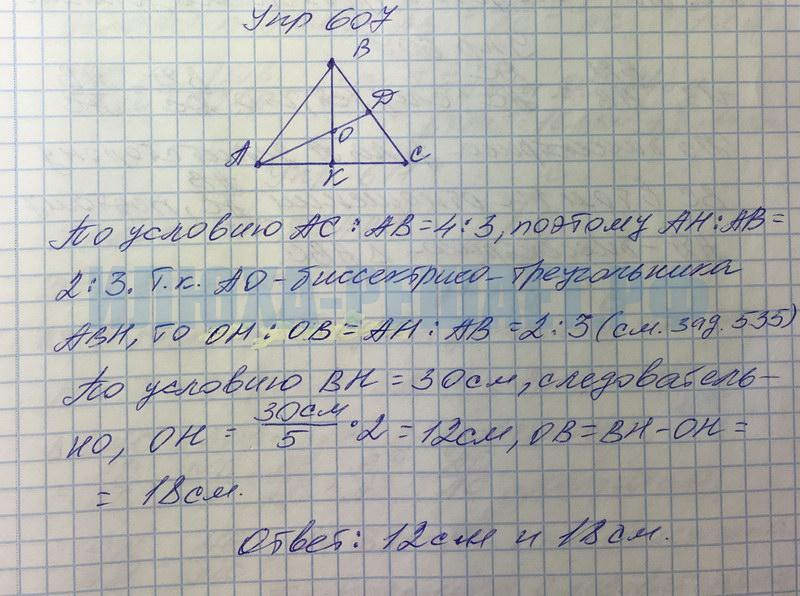 Упр 607
В
Д
О
А
К
С
По условию АС : АВ = 4 : 3, поэтому АН : АВ =
2 : 3. Т.к. АО - биссектриса треугольника
АВН, то ОН : ОВ = АН : АВ = 2 : 3 (см. зад. 535)
По условию ВН = 30см, следователь-
но, ОН = 30см/5 · 2 = 12см, ОВ = ВН - ОН =
= 18см.
Ответ: 12см и 18см.